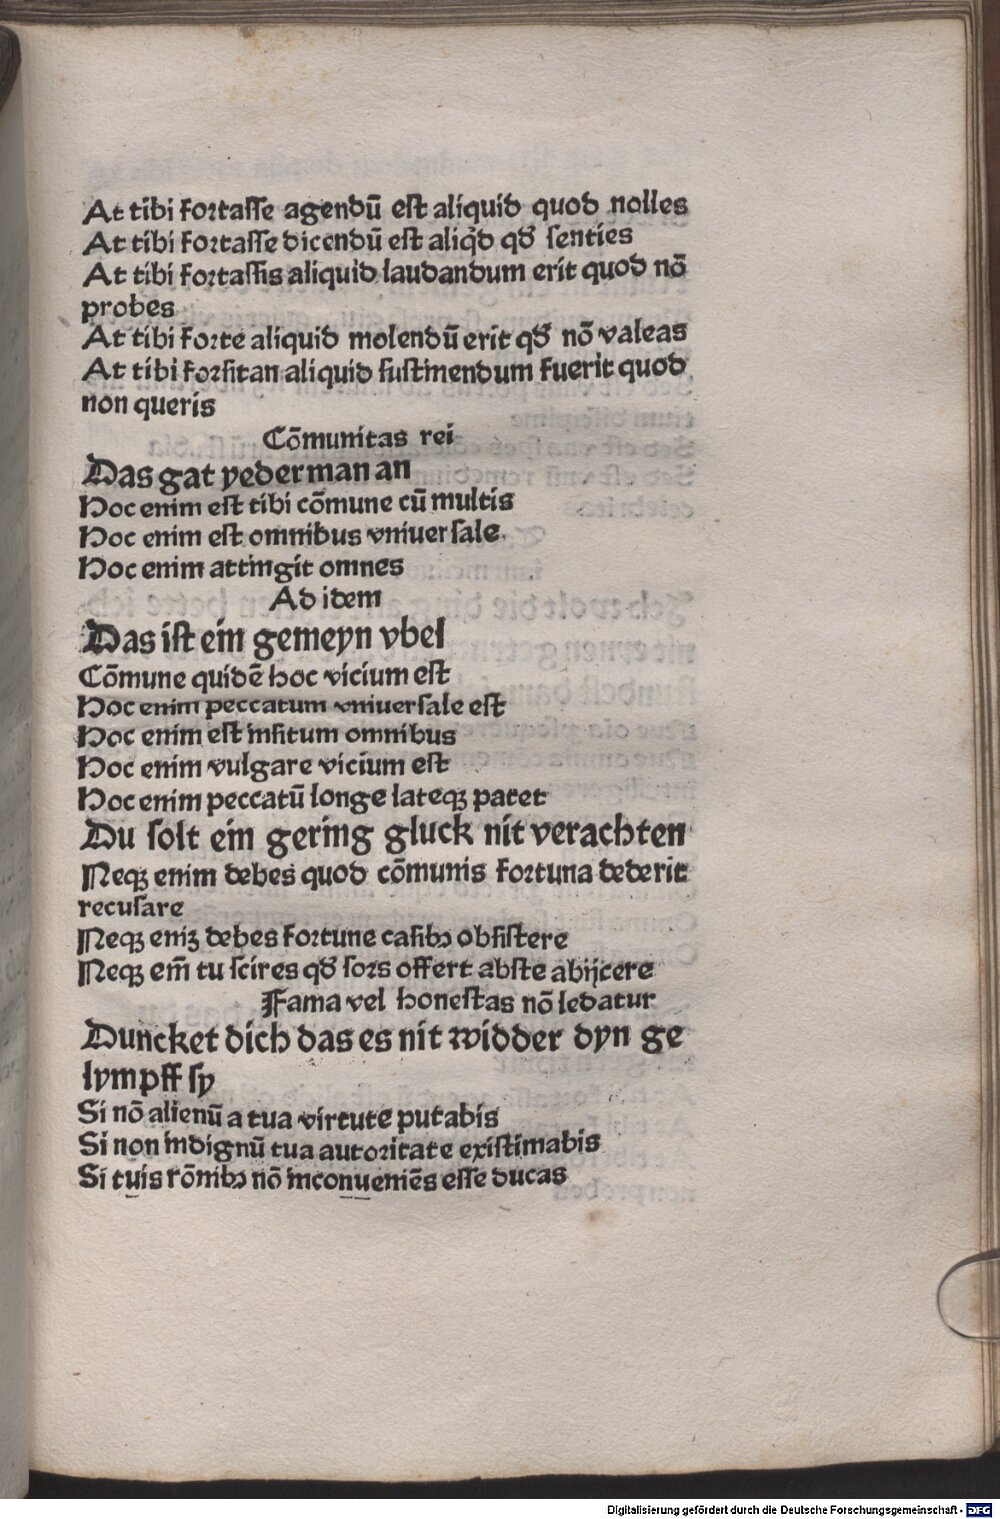 At tibi fortasse agendū est aliquid quod nolles
At tibi fortasse dicendū est aliqd̄ qđ senties
At tibi fortassis aliquid laudandum erit quod nō
probes
At tibi forte aliquid molendū erit qđ nō valeas
At tibi forsitan aliquid sustinendum fuerit quod
non queris
Cōmunitas rei
Das gat yederman an
Hoc enim est tibi cōmune cū multis
Hoc enim est omnibus vniuersale
Hoc enim attingit omnes
Ad idem
Das ist ein gemeyn vbel
Cōmune quidē hoc vicium est
Hoc enim peccatum vniuersale est
Hoc enim est insitum omnibus
Hoc enim vulgare vicium est
Hoc enim peccatū longe lateqꝫ patet
Du solt ein gering gluck nit verachten
Neqꝫ enim debes quod cōmunis fortuna dederit
recusare
Neqꝫ eniꝫ debes fortune casibꝫ obsistere
Neqꝫ em̄ tu scires qđ sors offert abste abijcere
Fama vel honestas nō ledatur
Duncket dich das es nit widder dyn ge
lympff sy
Si nō alienū a tua virtute putabis
Si non indignū tua autoritate existimabis
Si tuis rōnibꝫ nō inconueniēs esse ducas
Digitalisierung gefördert durch die Deutsche Forschungsgemeinschaft - DFG